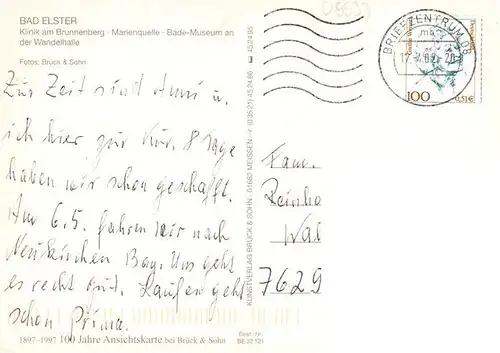 BAD ELSTER
Klinik am Brunnenberg · Marienquelle · Bade-Museum an
der Wandelhalle
Fotos: Brück & Sohn
Zur Zeit sind u.
ich hier zur Kur. 8 Tage
haben wir schon geschafft.
Am 6.5. fahren wir nach
Neukirchen Bay. Uns geht
es recht gut. Laufen geht
schon prima.
1897–1997 100 Jahre Ansichtskarte bei Brück & Sohn
Best.-Nr.
BE 32 121
KUNSTVERLAG BRÜCK & SOHN · 01662 MEISSEN
BRIEFZENTRUM 08
100
0,51€
Fam.
Reinho
Wal
7629